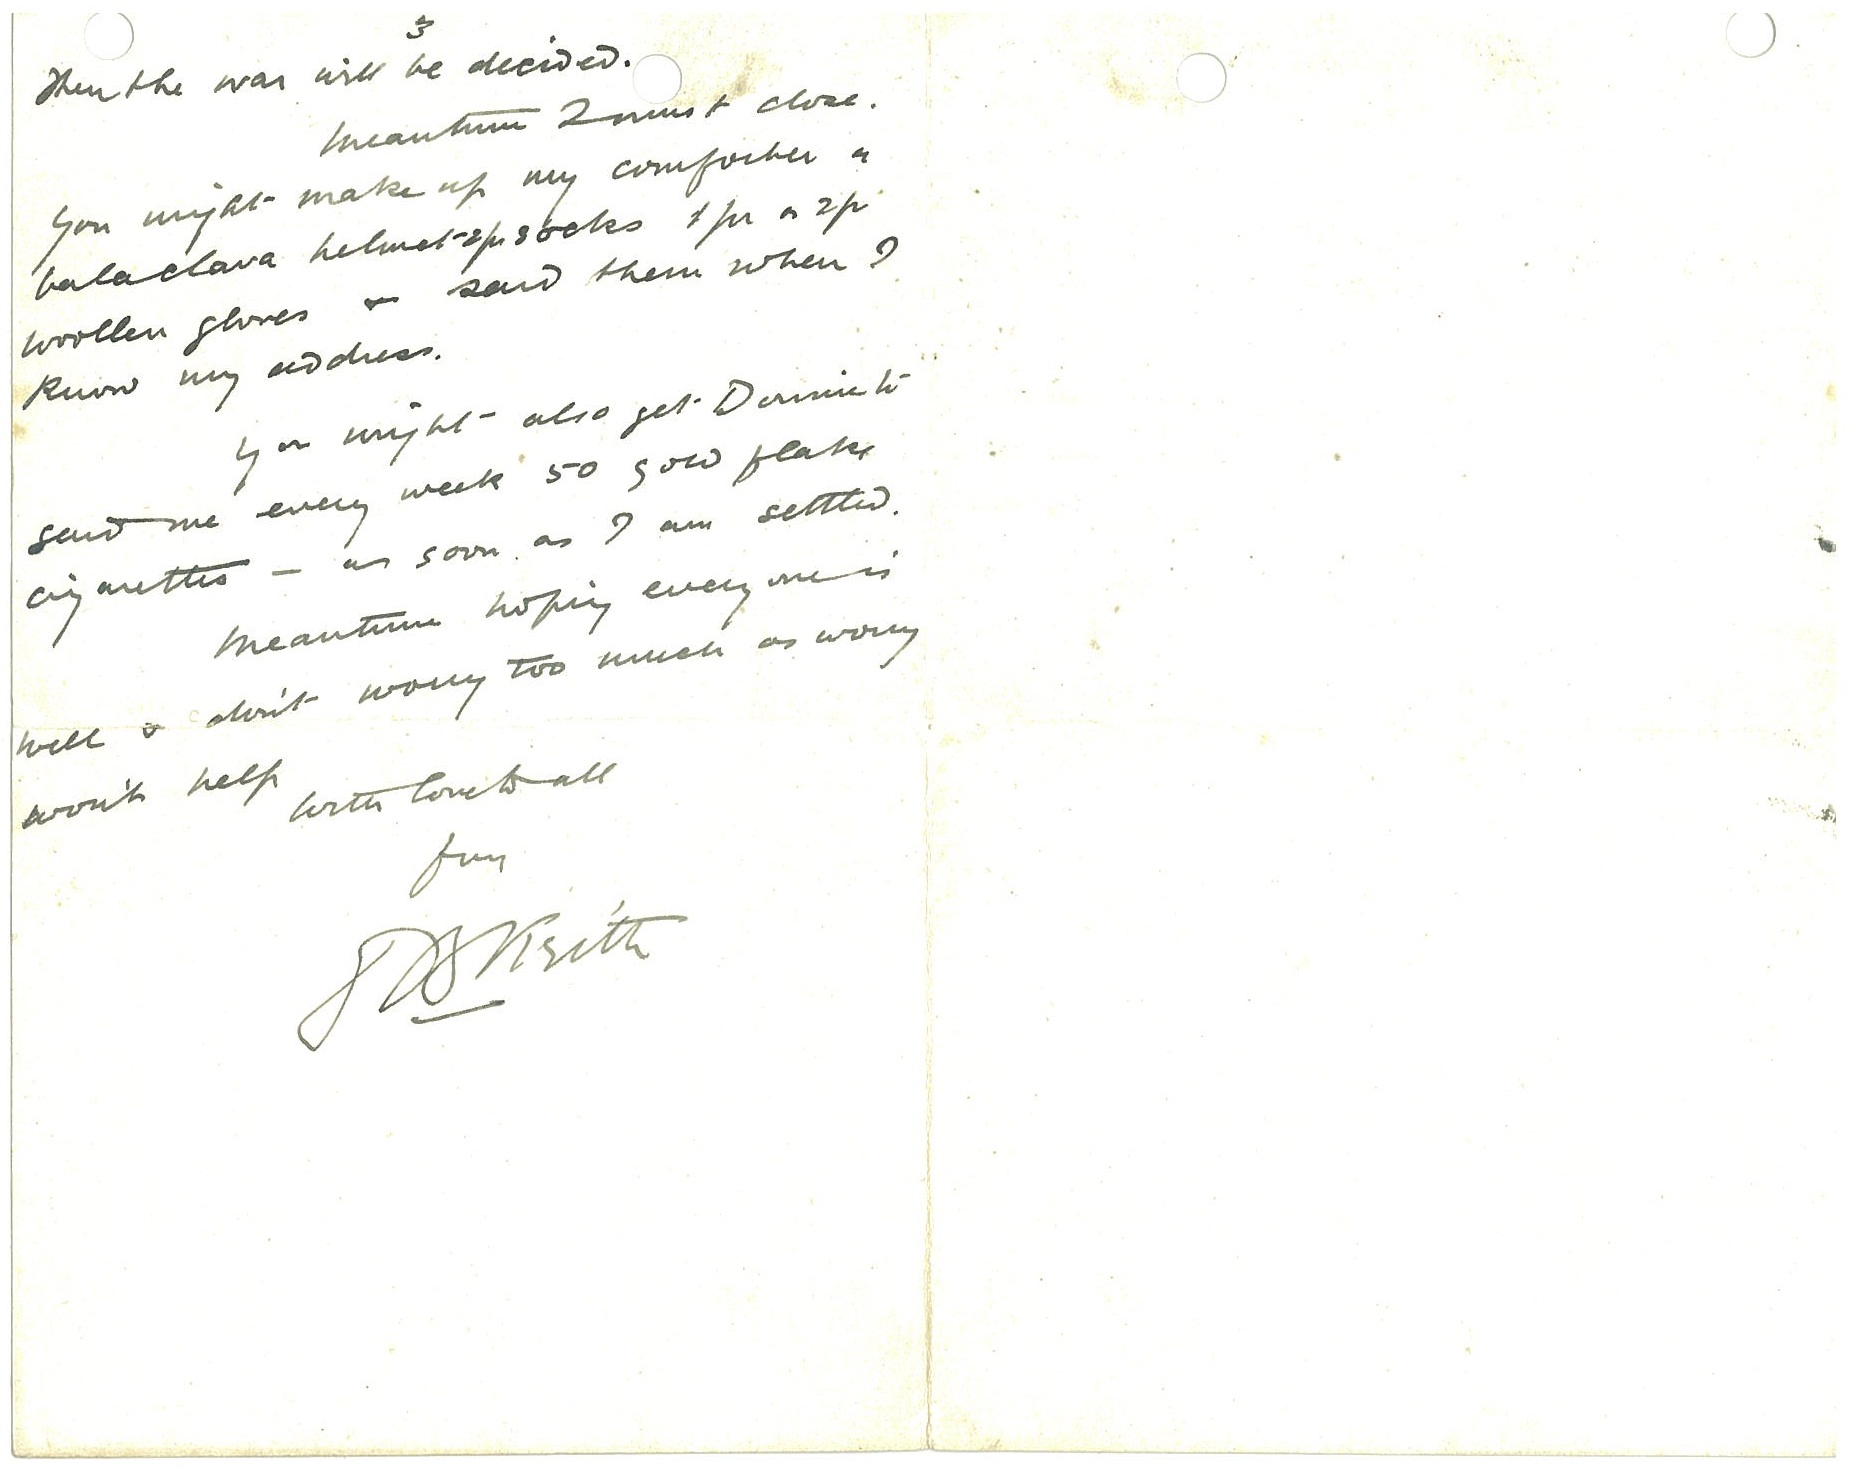 3
Then the war will be decided.
Meantime I must close.
You might make up my comforter a
balaclava helmet 2pr socks 1 pr or 2pr
woollen gloves & send them when I
know my address.
You might also get to
send me every week 50 gold flake
cigarettes – as soon as I am settled.
Meantime hoping everyone is
well & don't worry too much as worry
won't help
With love to all
from
Keith